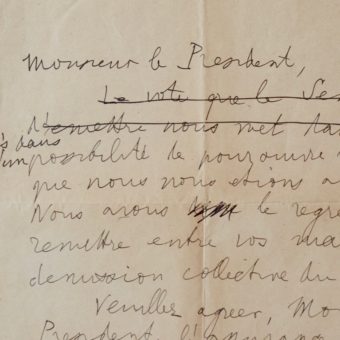 Monsieur le President,
Le vote que le Se
remettre nous met dan
s dans
l'impossibilité de poursuivre
que nous nous etions a
Nous avons le regre
remettre entre vos ma
demission collective du
Veuillez agréer, Mo
President, l'